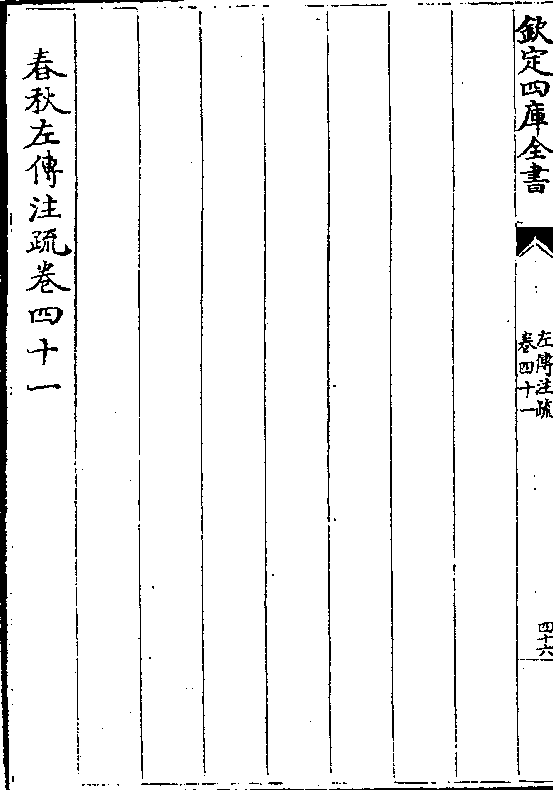 欽定四庫全書
左傳注疏
卷四十一
四十六
春秋左傳注疏卷四十一